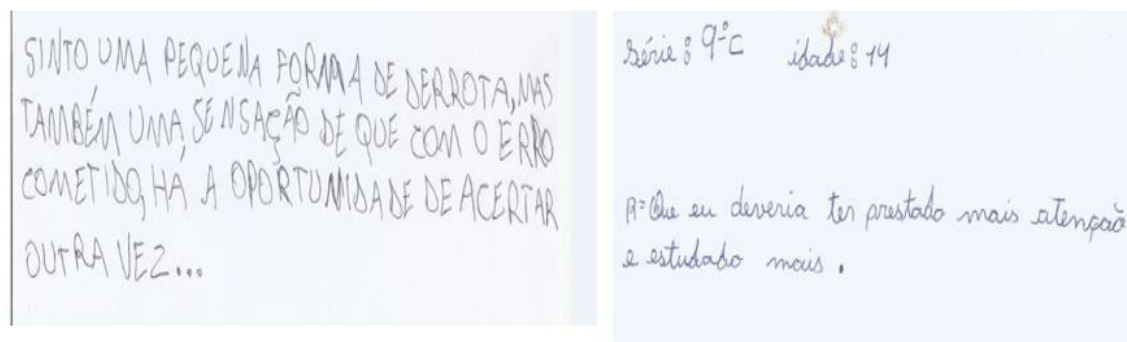 SINTO UMA PEQUENA FORMA DE DERROTA, MAS
TAMBÉM UMA SENSAÇÃO DE QUE COM O ERRO
COMETIDO, HÁ A OPORTUNIDADE DE ACERTAR
OUTRA VEZ...
Série: 9ºC idade: 14
R= Que eu deveria ter prestado mais atenção
e estudado mais.